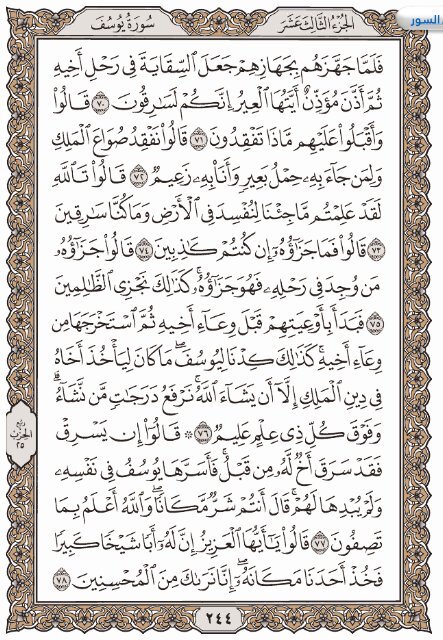 السور
سُورَةُ يُوسُفَ
الجُزْءُ الثَّالِثَ عَشَرَ
فَلَمَّا جَهَّزَهُم بِجَهَازِهِمْ جَعَلَ ٱلسِّقَايَةَ فِى رَحْلِ أَخِيهِ
ثُمَّ أَذَّنَ مُؤَذِّنٌ أَيَّتُهَا ٱلْعِيرُ إِنَّكُمْ لَسَٰرِقُونَ ٧٠ قَالُوا۟
وَأَقْبَلُوا۟ عَلَيْهِم مَّاذَا تَفْقِدُونَ ٧١ قَالُوا۟ نَفْقِدُ صُوَاعَ ٱلْمَلِكِ
وَلِمَن جَآءَ بِهِۦ حِمْلُ بَعِيرٍ وَأَنَا۠ بِهِۦ زَعِيمٌ ٧٢ قَالُوا۟ تَٱللَّهِ
لَقَدْ عَلِمْتُم مَّا جِئْنَا لِنُفْسِدَ فِى ٱلْأَرْضِ وَمَا كُنَّا سَٰرِقِينَ
٧٣ قَالُوا۟ فَمَا جَزَٰٓؤُهُۥٓ إِن كُنتُمْ كَٰذِبِينَ ٧٤ قَالُوا۟ جَزَٰٓؤُهُۥ
مَن وُجِدَ فِى رَحْلِهِۦ فَهُوَ جَزَٰٓؤُهُۥ ۚ كَذَٰلِكَ نَجْزِى ٱلظَّٰلِمِينَ
٧٥ فَبَدَأَ بِأَوْعِيَتِهِمْ قَبْلَ وِعَآءِ أَخِيهِ ثُمَّ ٱسْتَخْرَجَهَا مِن
وِعَآءِ أَخِيهِ ۚ كَذَٰلِكَ كِدْنَا لِيُوسُفَ ۖ مَا كَانَ لِيَأْخُذَ أَخَاهُ
فِى دِينِ ٱلْمَلِكِ إِلَّآ أَن يَشَآءَ ٱللَّهُ ۚ نَرْفَعُ دَرَجَٰتٍ مَّن نَّشَآءُ ۗ
وَفَوْقَ كُلِّ ذِى عِلْمٍ عَلِيمٌ ٧٦ ۞ قَالُوٓا۟ إِن يَسْرِقْ
فَقَدْ سَرَقَ أَخٌ لَّهُۥ مِن قَبْلُ ۚ فَأَسَرَّهَا يُوسُفُ فِى نَفْسِهِۦ
وَلَمْ يُبْدِهَا لَهُمْ ۚ قَالَ أَنتُمْ شَرٌّ مَّكَانًا ۖ وَٱللَّهُ أَعْلَمُ بِمَا
تَصِفُونَ ٧٧ قَالُوا۟ يَٰٓأَيُّهَا ٱلْعَزِيزُ إِنَّ لَهُۥٓ أَبًا شَيْخًا كَبِيرًا
فَخُذْ أَحَدَنَا مَكَانَهُۥٓ ۖ إِنَّا نَرَىٰكَ مِنَ ٱلْمُحْسِنِينَ ٧٨
ربع
الحزب
٢٥
٢٤٤